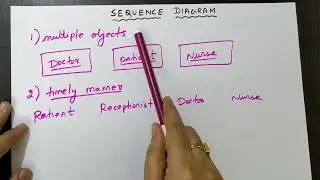 SEQUENCE DIAGRAM
1) multiple objects
Doctor Patient Nurse
2) timely manner
Patient Receptionist Doctor Nurse